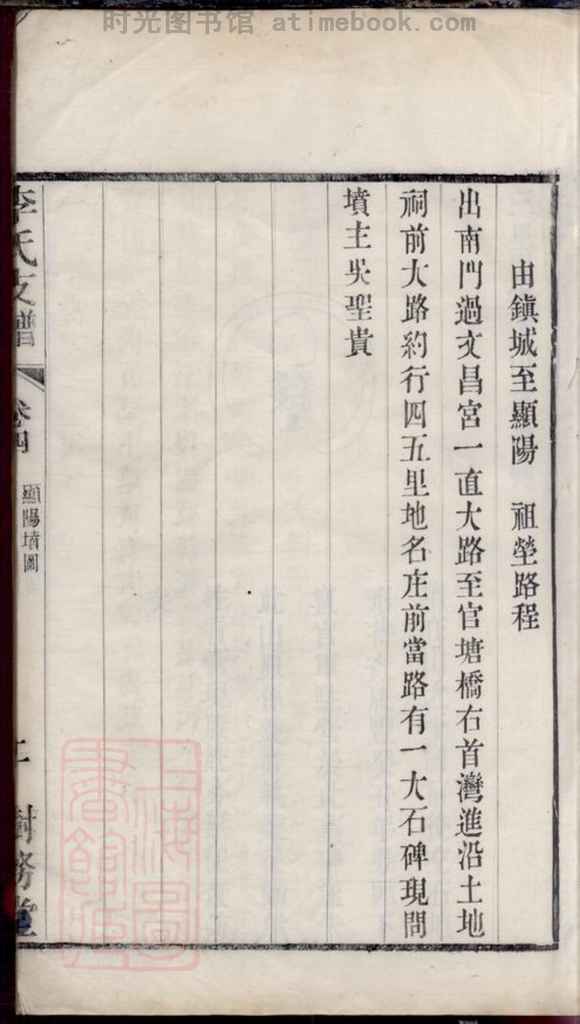 时光图书馆 atimebook.com
由鎮城至顯陽　祖塋路程
出南門過文昌宮一直大路至官塘橋右首灣進沿土地
祠前大路約行四五里地名庄前當路有一大石碑現問
墳主吳聖貴
李氏支譜
卷四
顯陽墳圖
二
樹務堂
上海圖書館藏